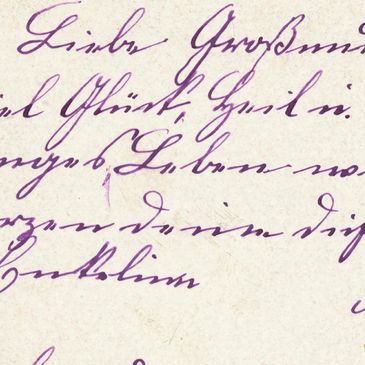 Liebe Großmu
iel Glück, Heil u.
nges Leben w
rzen deine dic
Enkelin